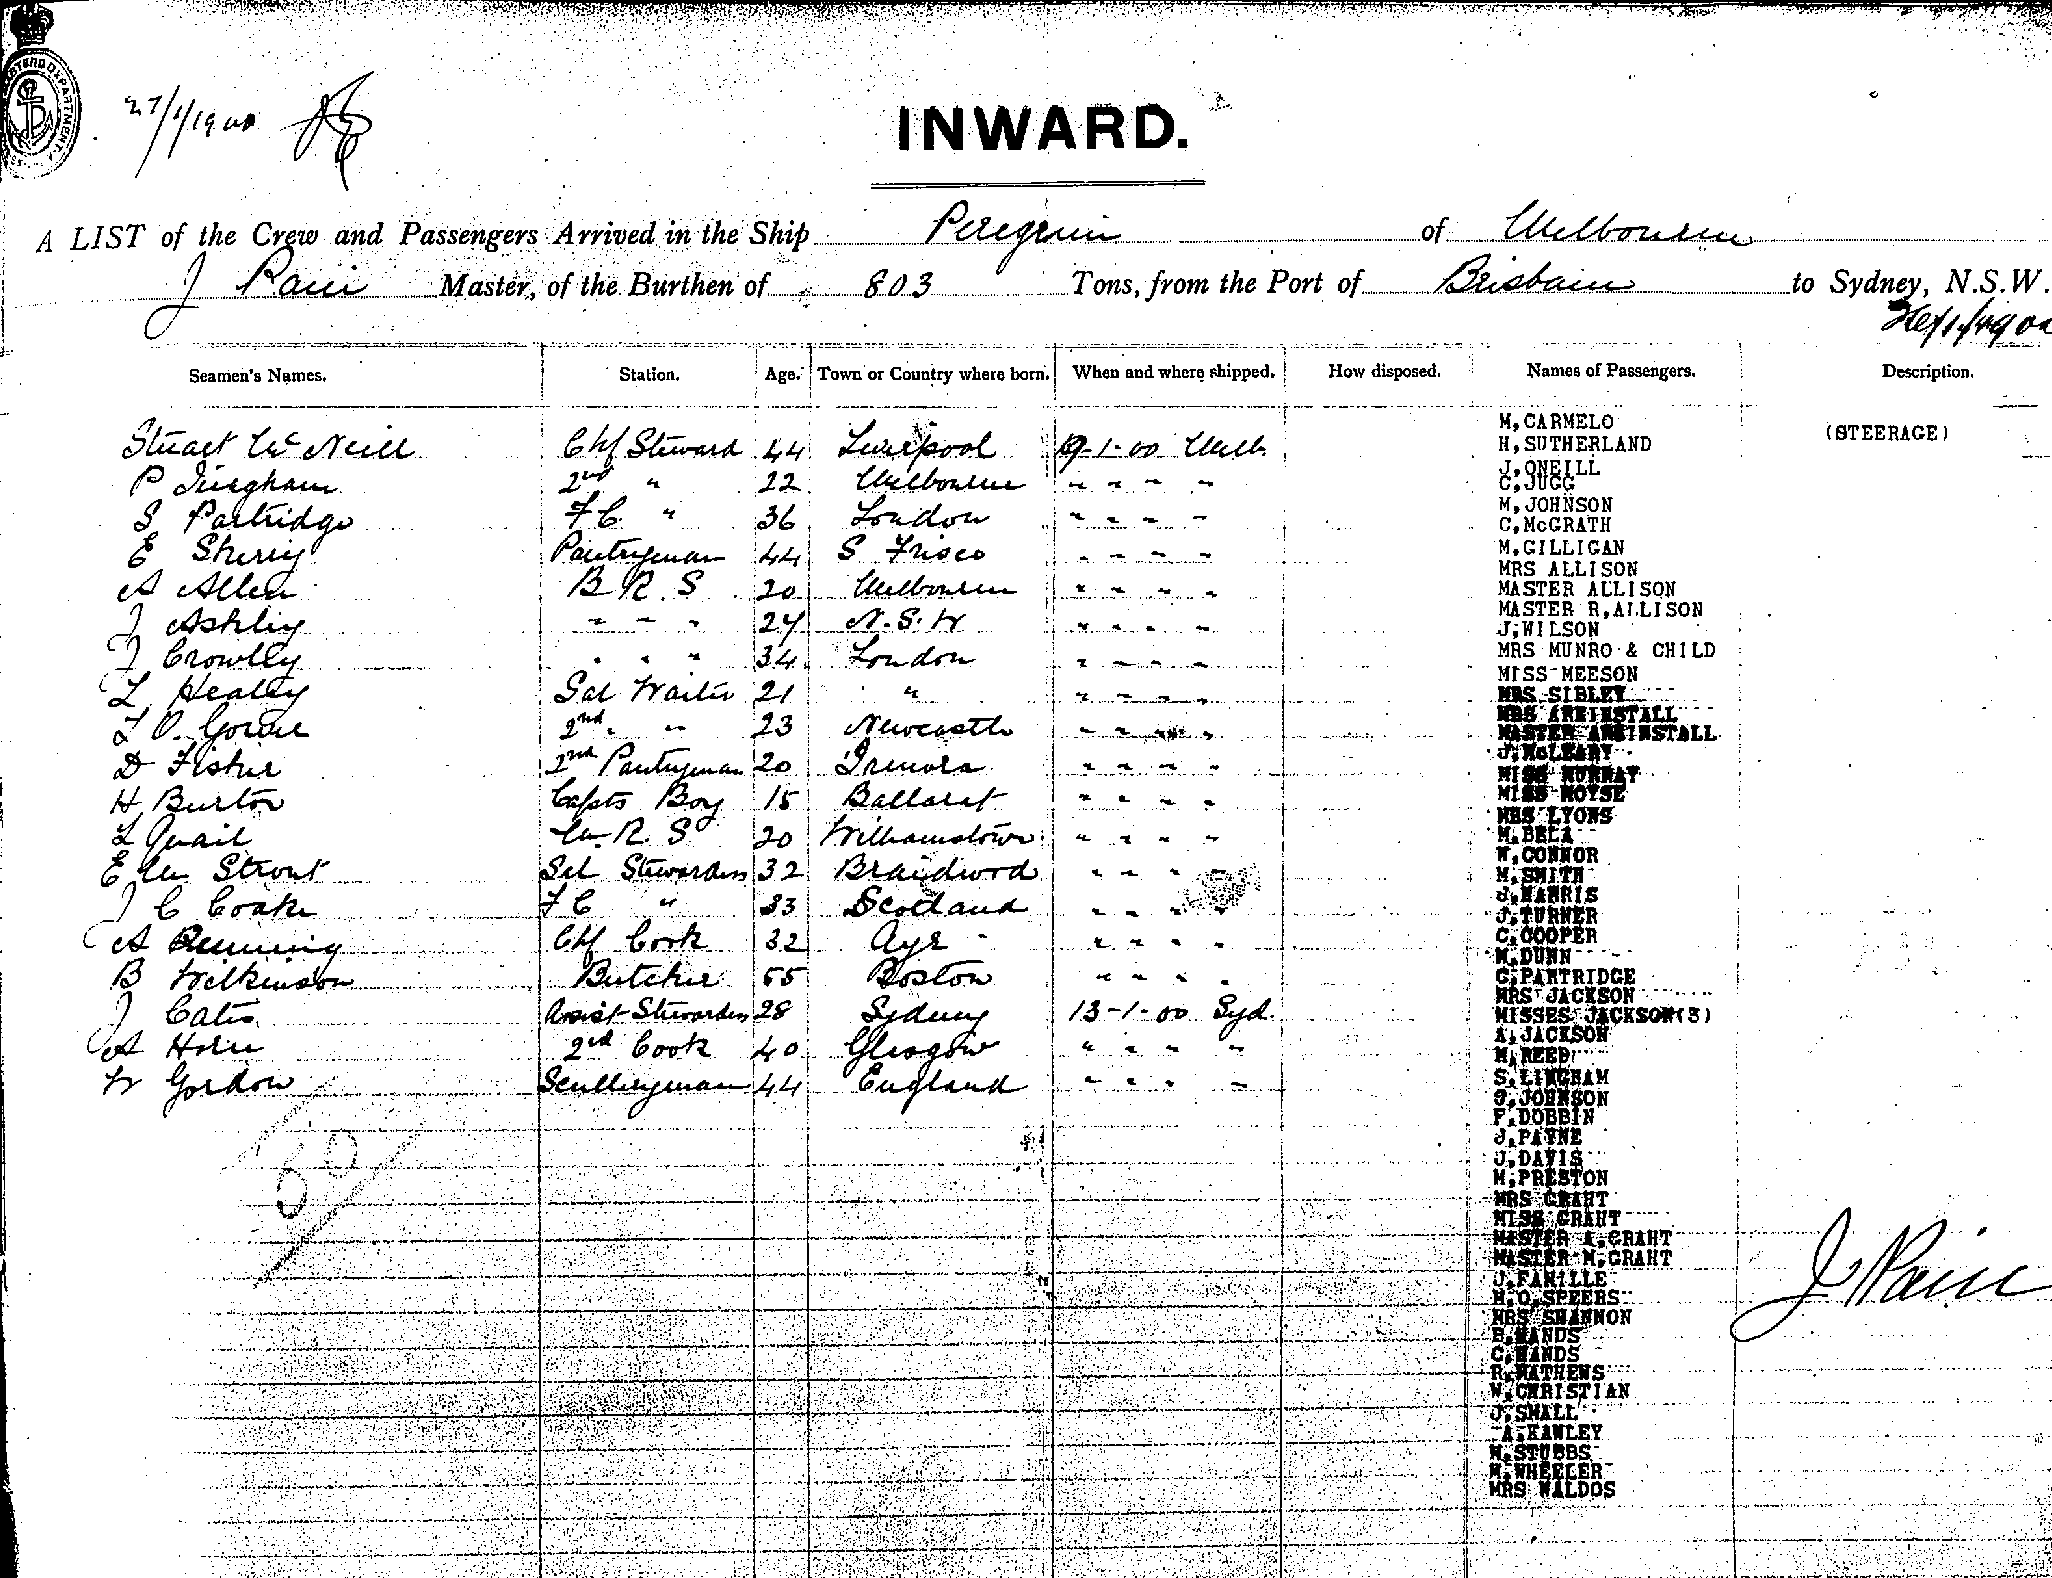 27/1/1900
INWARD.
A LIST of the Crew and Passengers Arrived in the Ship Peregrine of Melbourne
J Pain Master, of the Burthen of 803 Tons, from the Port of Brisbane to Sydney, N.S.W.
Seamen's Names. Station. Age. Town or Country where born. When and where shipped. How disposed. Names of Passengers. Description.
Stuart McNeill Chf Steward 44 Liverpool 9-1-00 Melb.
P Bingham 2nd " 22 Melbourne " " " "
S Partridge F C " 36 London " " " "
E Sherry Pantryman 44 S Frisco " " " "
A Allen B R S 20 Melbourne " " " "
J Ashley " " " 24 N.S.W " " " "
J Crowley " " " 34 London " " " "
L Healey Sal Waiter 21 " " " " "
L O. Gorne 2nd " 23 Newcastle " " " "
D Fisher 2nd Pantryman 20 " " " "
H Burton Capts Boy 15 Ballarat " " " "
L Quail R S 20 Williamstown " " " "
E M Strout Sal Stewardess 32 Braidwood " " " "
J C Coake F C " 33 Scotland " " " "
A Chf Cook 32 Ayr " " " "
B Wilkinson Butcher 55 Boston " " " "
J Cates Assist Stewardess 28 Sydney 13-1-00 Syd.
A Horne 2nd Cook 40 Glasgow " " " "
W Gordon Sculleryman 44 England " " " "
M,CARMELO
(STEERAGE)
H,SUTHERLAND
J,ONEILL
C,JUGG
M,JOHNSON
C,McGRATH
M,GILLIGAN
MRS ALLISON
MASTER ALLISON
MASTER R,ALLISON
J,WILSON
MRS MUNRO & CHILD
MISS MEESON
MRS SIBLEY
MRS ARKINSTALL
MASTER ARKINSTALL
J,McLEARY
MISS MURRAY
MISS MOYSE
MRS LYONS
M,BELA
W,CONNOR
M,SMITH
J,HARRIS
J,TURNER
C,COOPER
M,DUNN
C,PARTRIDGE
MRS JACKSON
MISSES JACKSON(3)
A,JACKSON
M,REED
S,LINGHAM
J,JOHNSON
F,DOBBIN
J,PAYNE
J,DAVIS
M,PRESTON
MRS GRANT
MISS GRANT
MASTER A,GRANT
MASTER M,GRANT
J,FAMILLE
H,O,SPEERS
MRS SHANNON
B,HANDS
C,HANDS
R,MATHENS
W,CHRISTIAN
J,SMALL
A,HANLEY
M,STUBBS
M,WHEELER
MRS WALDOS
J Pain